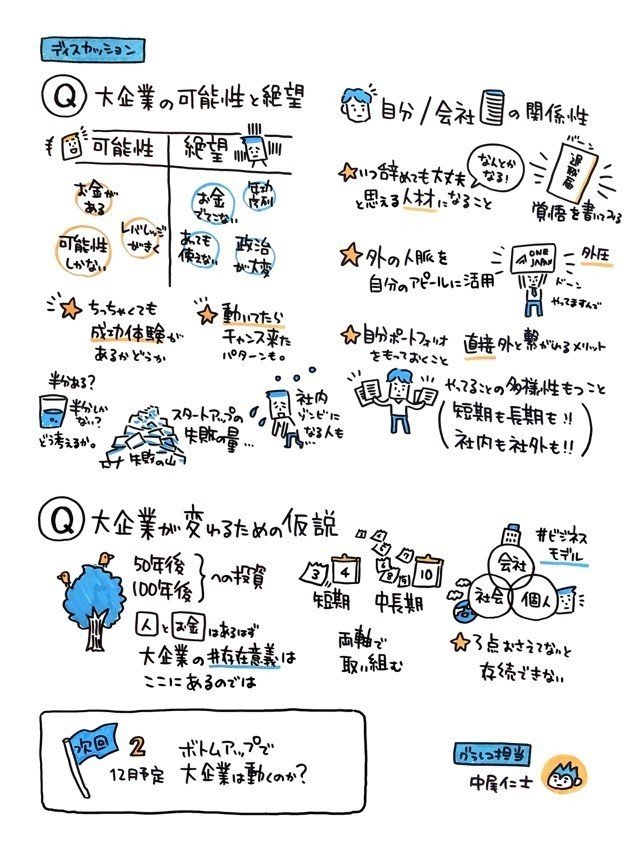 ディスカッション
Q 大企業の可能性と絶望
可能性
絶望
お金が
ある
レバレッジ
がきく
可能性
しかない
お金
でてこない
年功
序列
あっても
使えない
政治
が大変
ちっちゃくても
成功体験が
あるかどうか
動いてたら
チャンス来た
パターンも。
半分ある?
半分しか
ない?
どう考えるか。
スタートアップの
失敗の量…
失敗の山
社内
ゾンビに
なる人も…
自分/会社の関係性
いつ辞めても大丈夫
と思える人材になること
なんとか
なる!
バーン
退職届
覚悟を書いてみる
外の人脈を
自分のアピールに活用
ONE
JAPAN
外圧
ドーン
やってますんで
自分ポートフォリオ
をもっておくこと
直接外と繋がれるメリット
やってることの多様性もつこと
短期も長期も!!
社内も社外も!!
Q 大企業が変わるための仮説
50年後
100年後
への投資
人とお金はあるはず
大企業の#存在意義は
ここにあるのでは
3
4
短期
10
中長期
両軸で
取り組む
#ビジネス
モデル
会社
社会
個人
3点おさえてないと
存続できない
次回
2
12月予定
ボトムアップで
大企業は動くのか?
グラレコ担当
中尾仁士